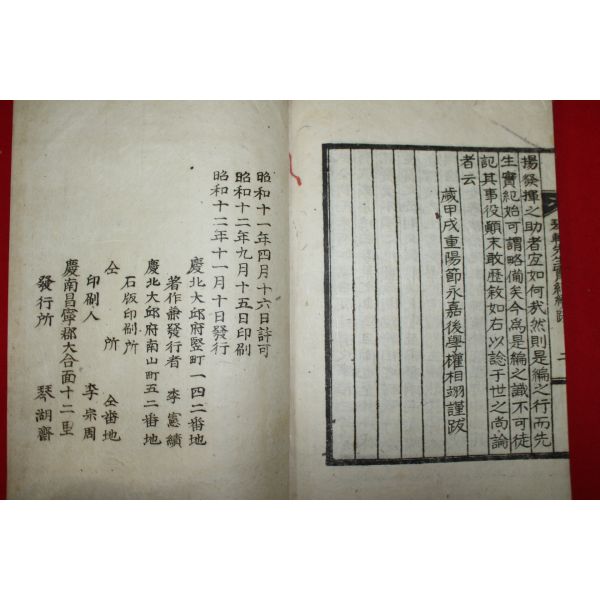 揚發揮之助者宜如何哉然則是編之行而先
生實紀始可謂略備矣今爲是編之識不可徒
記其事役顚末敢歷敘如右以諗于世之尚論
者云
歲甲戌重陽節永嘉後學權相翊謹跋
昭和十一年四月十六日許可
昭和十二年九月十五日印刷
昭和十二年十一月十日發行
慶北大邱府竪町一四二番地
著作兼發行者 李憲績
慶北大邱府南山町五二番地
石版印刷所
仝所 仝番地
印刷人 李宗周
慶南昌寧郡大合面十二里
發行所 琴湖齋